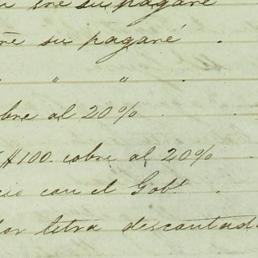 su pagaré
su pagaré
" "
cobre al 20%
$100. cobre al 20%
con el Gobº
por letra descontada